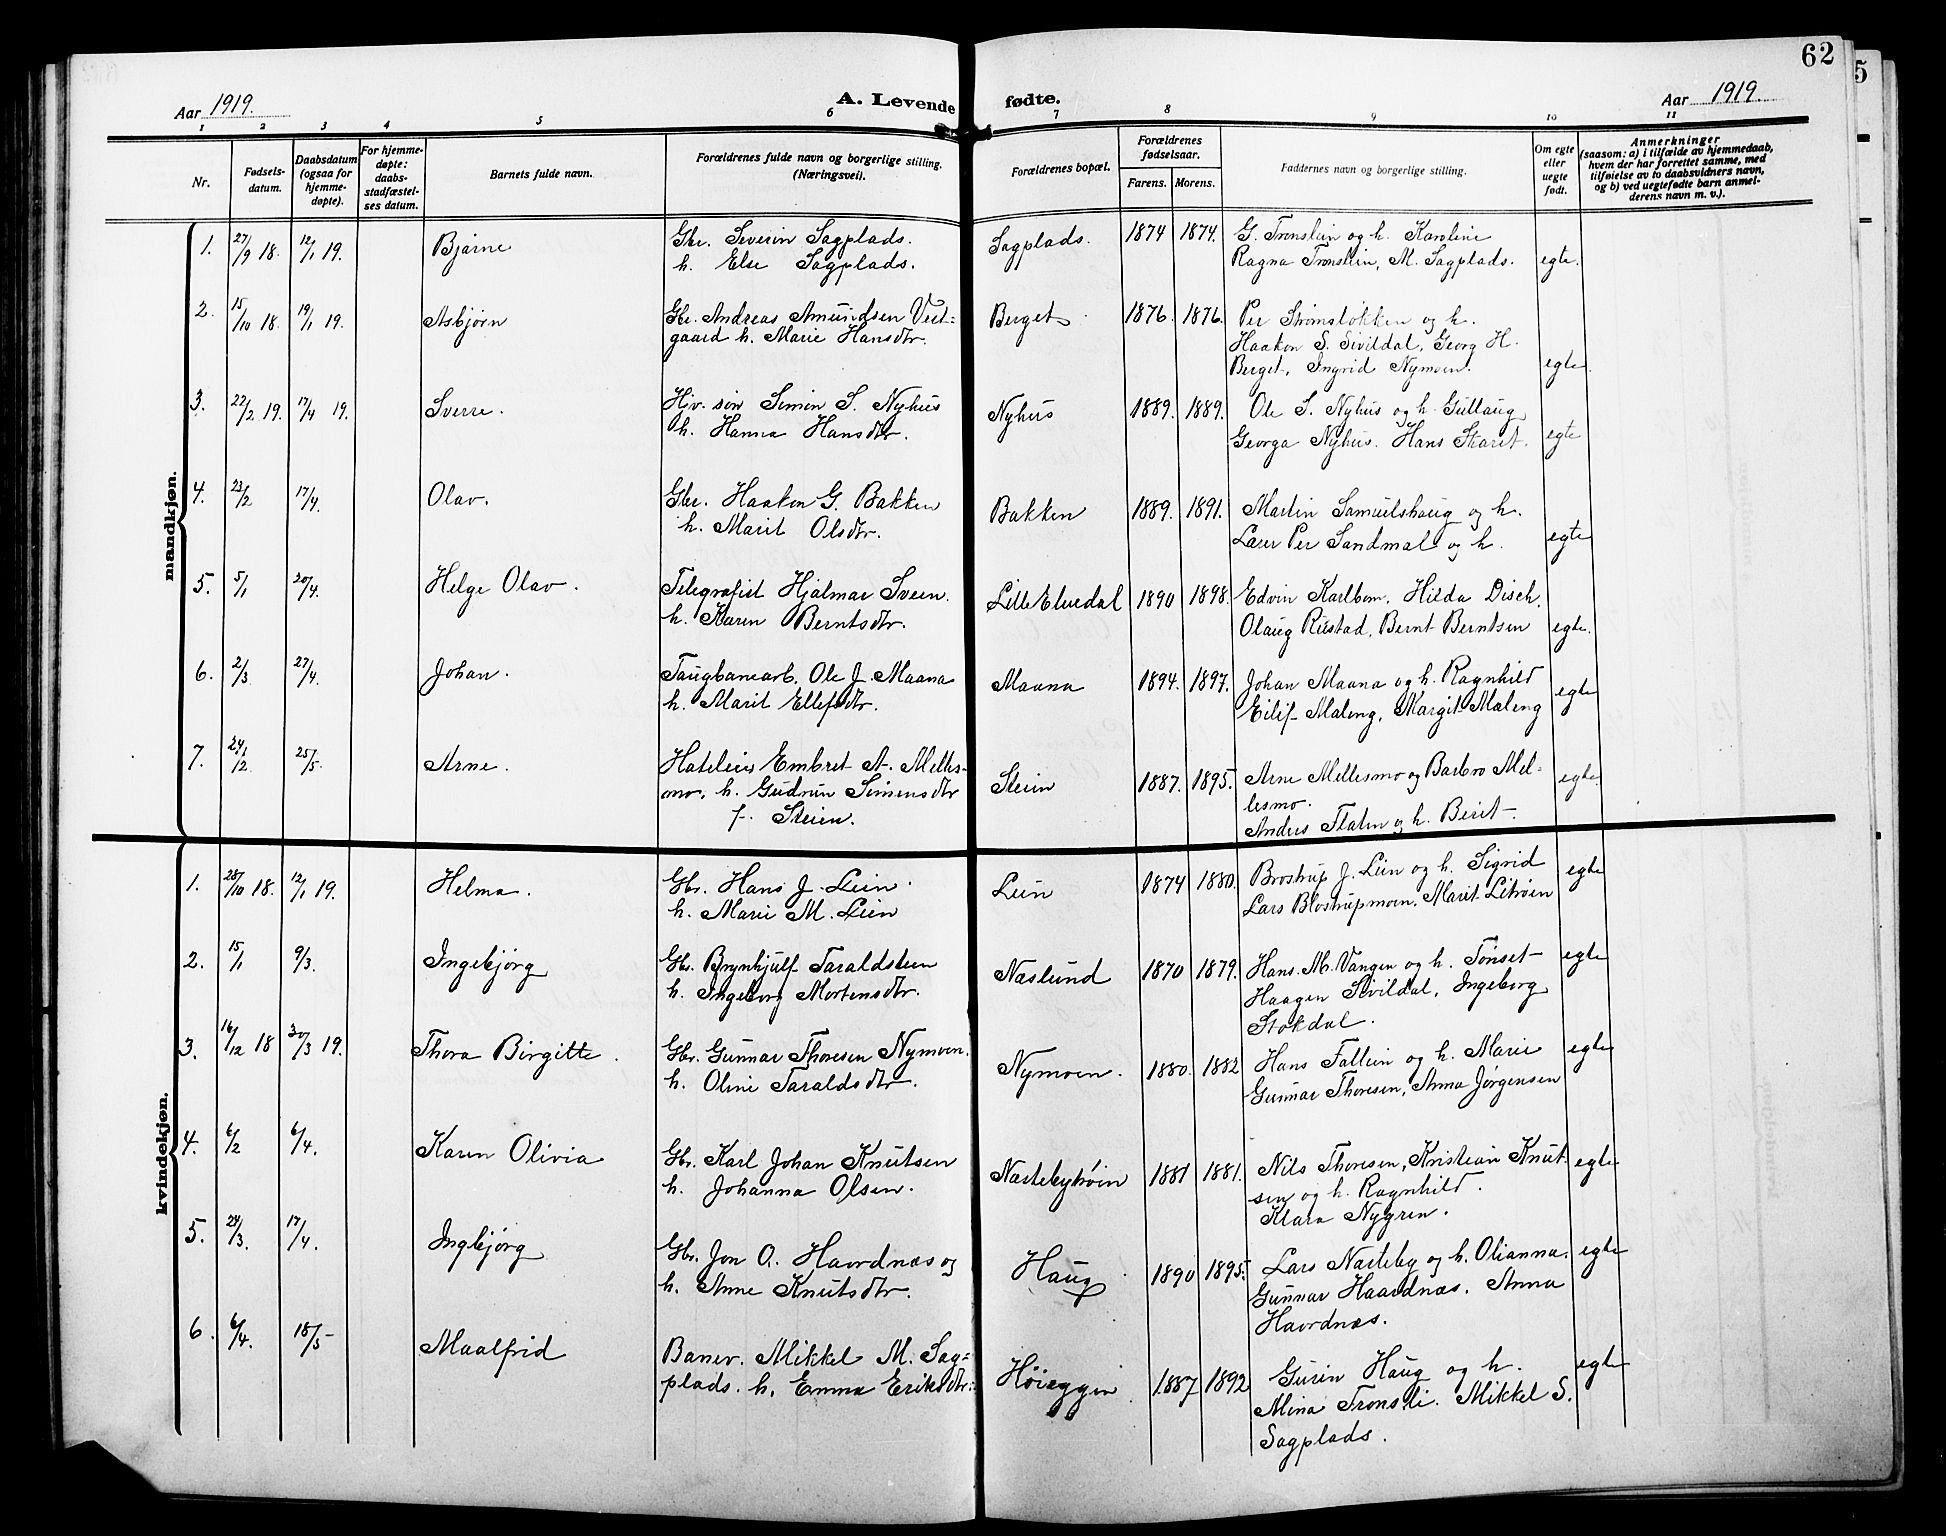 62
5
Aar 1919.
A. Levende fødte.
Aar 1919.
1 2 3 4 5 6 7 8 9 10 11
Nr.
Fødsels-
datum.
Daabsdatum
(ogsaa for
hjemme-
døpte).
For hjemme-
døpte:
daabs-
stadfæstel-
ses datum.
Barnets fulde navn.
Forældrenes fulde navn og borgerlige stilling.
(Næringsvei).
Forældrenes bopæl.
Forældrenes
fødselsaar.
Farens. Morens.
Faddernes navn og borgerlige stilling.
Om egte
eller
uegte
født.
Anmerkninger
(saasom: a) i tilfælde av hjemmedaab,
hvem der har forrettet samme, med
tilføielse av to daabsvidners navn,
og b) ved uegtefødte barn anmel-
derens navn m. v.).
mandkjøn.
1. 27/9 18. 12/1 19. Bjarne Gbr. Severin Sagplads. Sagplads. 1874 1874. G. Tronslien og h. Karoline
h. Else Sagplads. Ragna Tronslien, M. Sagplads. egte.
2. 15/10 18. 19/1 19. Asbjørn Gbr. Andreas Amundsen Vest- Berget 1876. 1876. Per Strømsløkken og h.
gaard h. Marie Hansdtr. Haakon S. Sivildal, Georg H.
Berget, Ingrid Nymoen. egte.
3. 22/2 19. 17/4 19. Sverre. søn Simen S. Nyhus Nyhus 1889. 1889. Ole S. Nyhus og h. Gullaug
h. Hanna Hansdtr. Georga Nyhus. Hans Skaret. egte
4. 23/2 17/4. Olav. Gbr. Haakon G. Bakken Bakken 1889. 1891. Martin Samuelshaug og h.
h. Marit Olsdtr. Lærer Per Sandmæl og h. egte
5. 5/1 20/4. Helge Olav. Telegrafist Hjalmar Sveen. Lille Elvedal 1890 1898. Edvin Karlbom, Hilda Disch,
h. Karen Berntsdtr. Olaug Rustad, Bernt Berntsen egte.
6. 2/3 27/4. Johan. Taugbanearb. Ole J. Maana Maana 1894. 1897. Johan Maana og h. Ragnhild
h. Marit Ellefsdtr. Eilif Maleng, Margit Maleng egte
7. 24/12 25/5. Arne. Hoteleier Embret A. Melles- Steien 1887. 1895. Arne Mellesmo og Barbro Mel-
mo, h. Gudrun Simensdtr lesmo. egte.
f. Steien. Anders Flaten og h. Berit.
kvindekjøn.
1. 28/10 18. 12/1 19. Helma. Gbr. Hans J. Lien. Lien 1874 1880. Brostrup J. Lien og h. Sigrid egte
h. Marie M. Lien Lars Blostrupmoen, Marit Litrøen
2. 15/1 9/3. Ingebjørg Gbr. Brynhjulf Taraldsteen Næslund 1870 1879. Hans M. Vangen og h. Tønset egte
h. Ingeborg Mortensdtr. Haagen Sivildal, Ingeborg
Stokdal.
3. 16/12 18 30/3 19. Thora Birgitte. Gbr. Gunnar Thoresen Nymoen. Nymoen. 1880. 1882 Hans Fallien og h. Marie egte
h. Oline Taraldsdtr. Gunnar Thoresen, Anna Jørgensen
4. 6/2 6/4. Karen Olivia Gbr. Karl Johan Knutsen Næstebytrøen 1881 1881. Nils Thoresen, Kristian Knut- egte
h. Johanna Olsen. sen og h. Ragnhild.
Klara Nygren.
5. 24/3. 17/4. Ingebjørg Gbr. Jon O. Haordnæs og Haug 1890 1895. Lars Næsteby og h. Olianna. egte
h. Anne Knutsdtr. Gunnar Haardnæs. Anna
Haordnæs.
6. 6/4. 18/5 Maalfrid Banev. Mikkel M. Sag- Høieggen 1887 1892 Guren Haug og h. egte
plads. h. Emma Eriksdtr. Mina Tronsli. Mikkel S.
Sagplads.